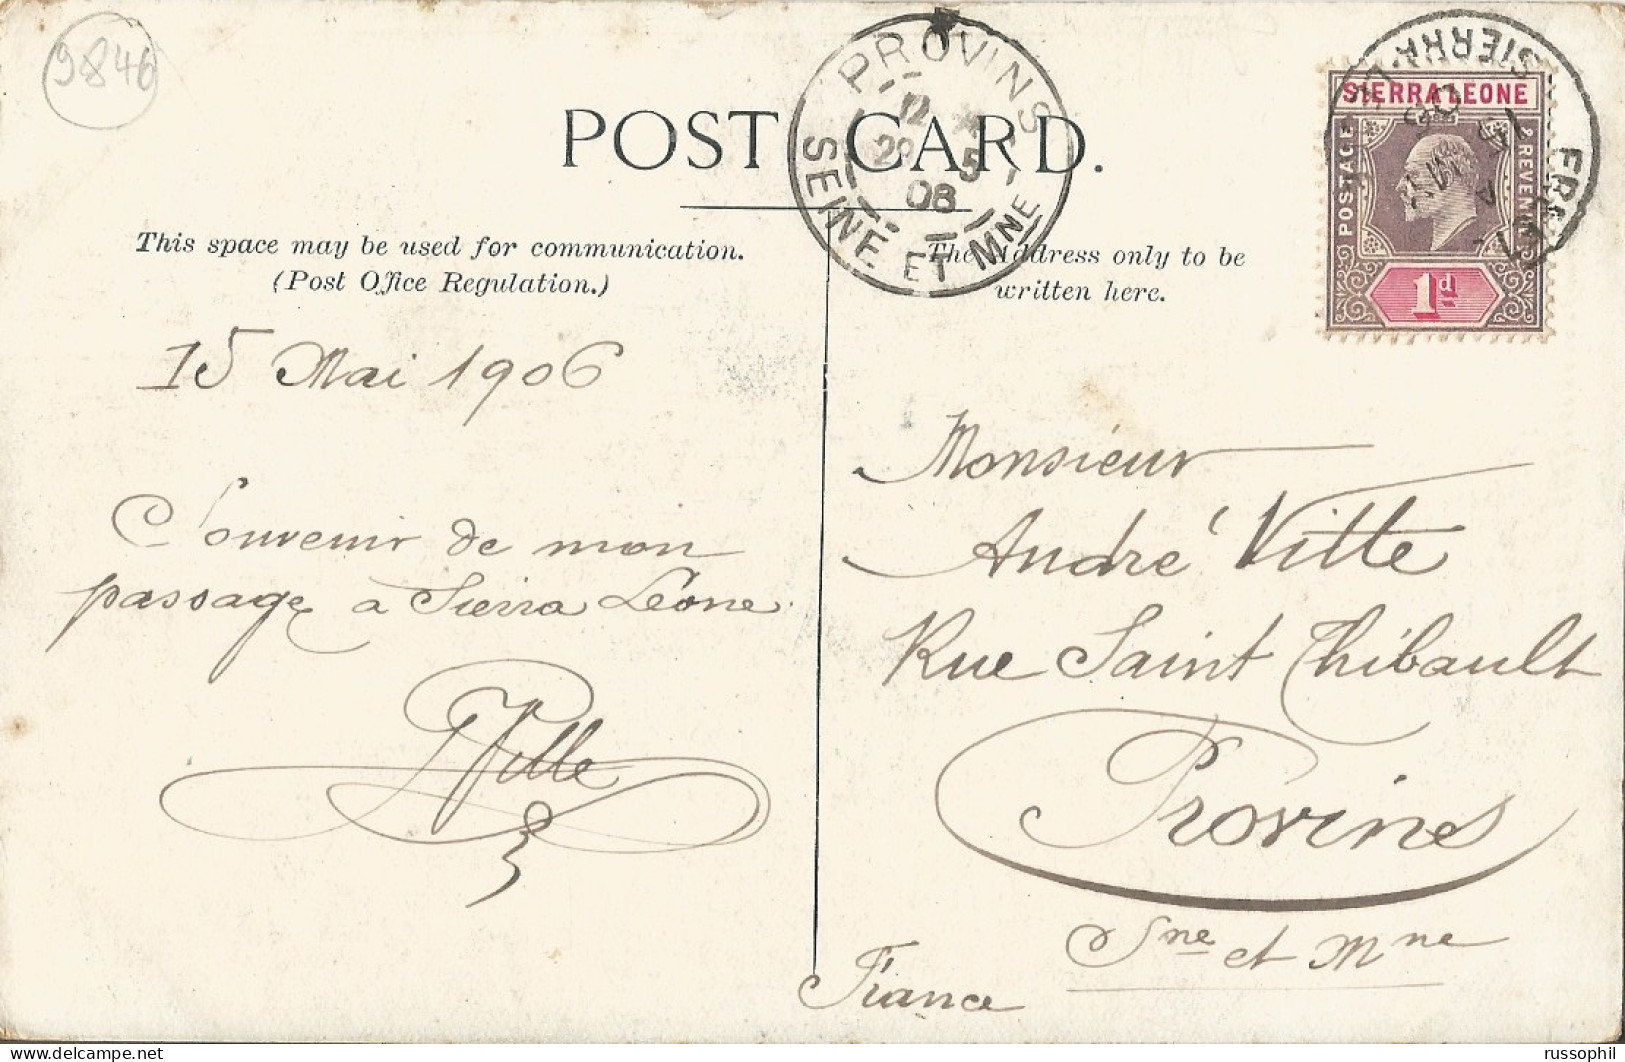 9846
POST CARD.
PROVINS
12
29 5
06
SEINE ET MNE
SIERRA LEONE
POSTAGE & REVENUE
1d
This space may be used for communication.
(Post Office Regulation.)
The Address only to be
written here.
15 Mai 1906
Souvenir de mon
passage a Sierra Léone.
Monsieur
André Vitte
Rue Saint Thibault
Provins
Sne et Mne
France
russophil